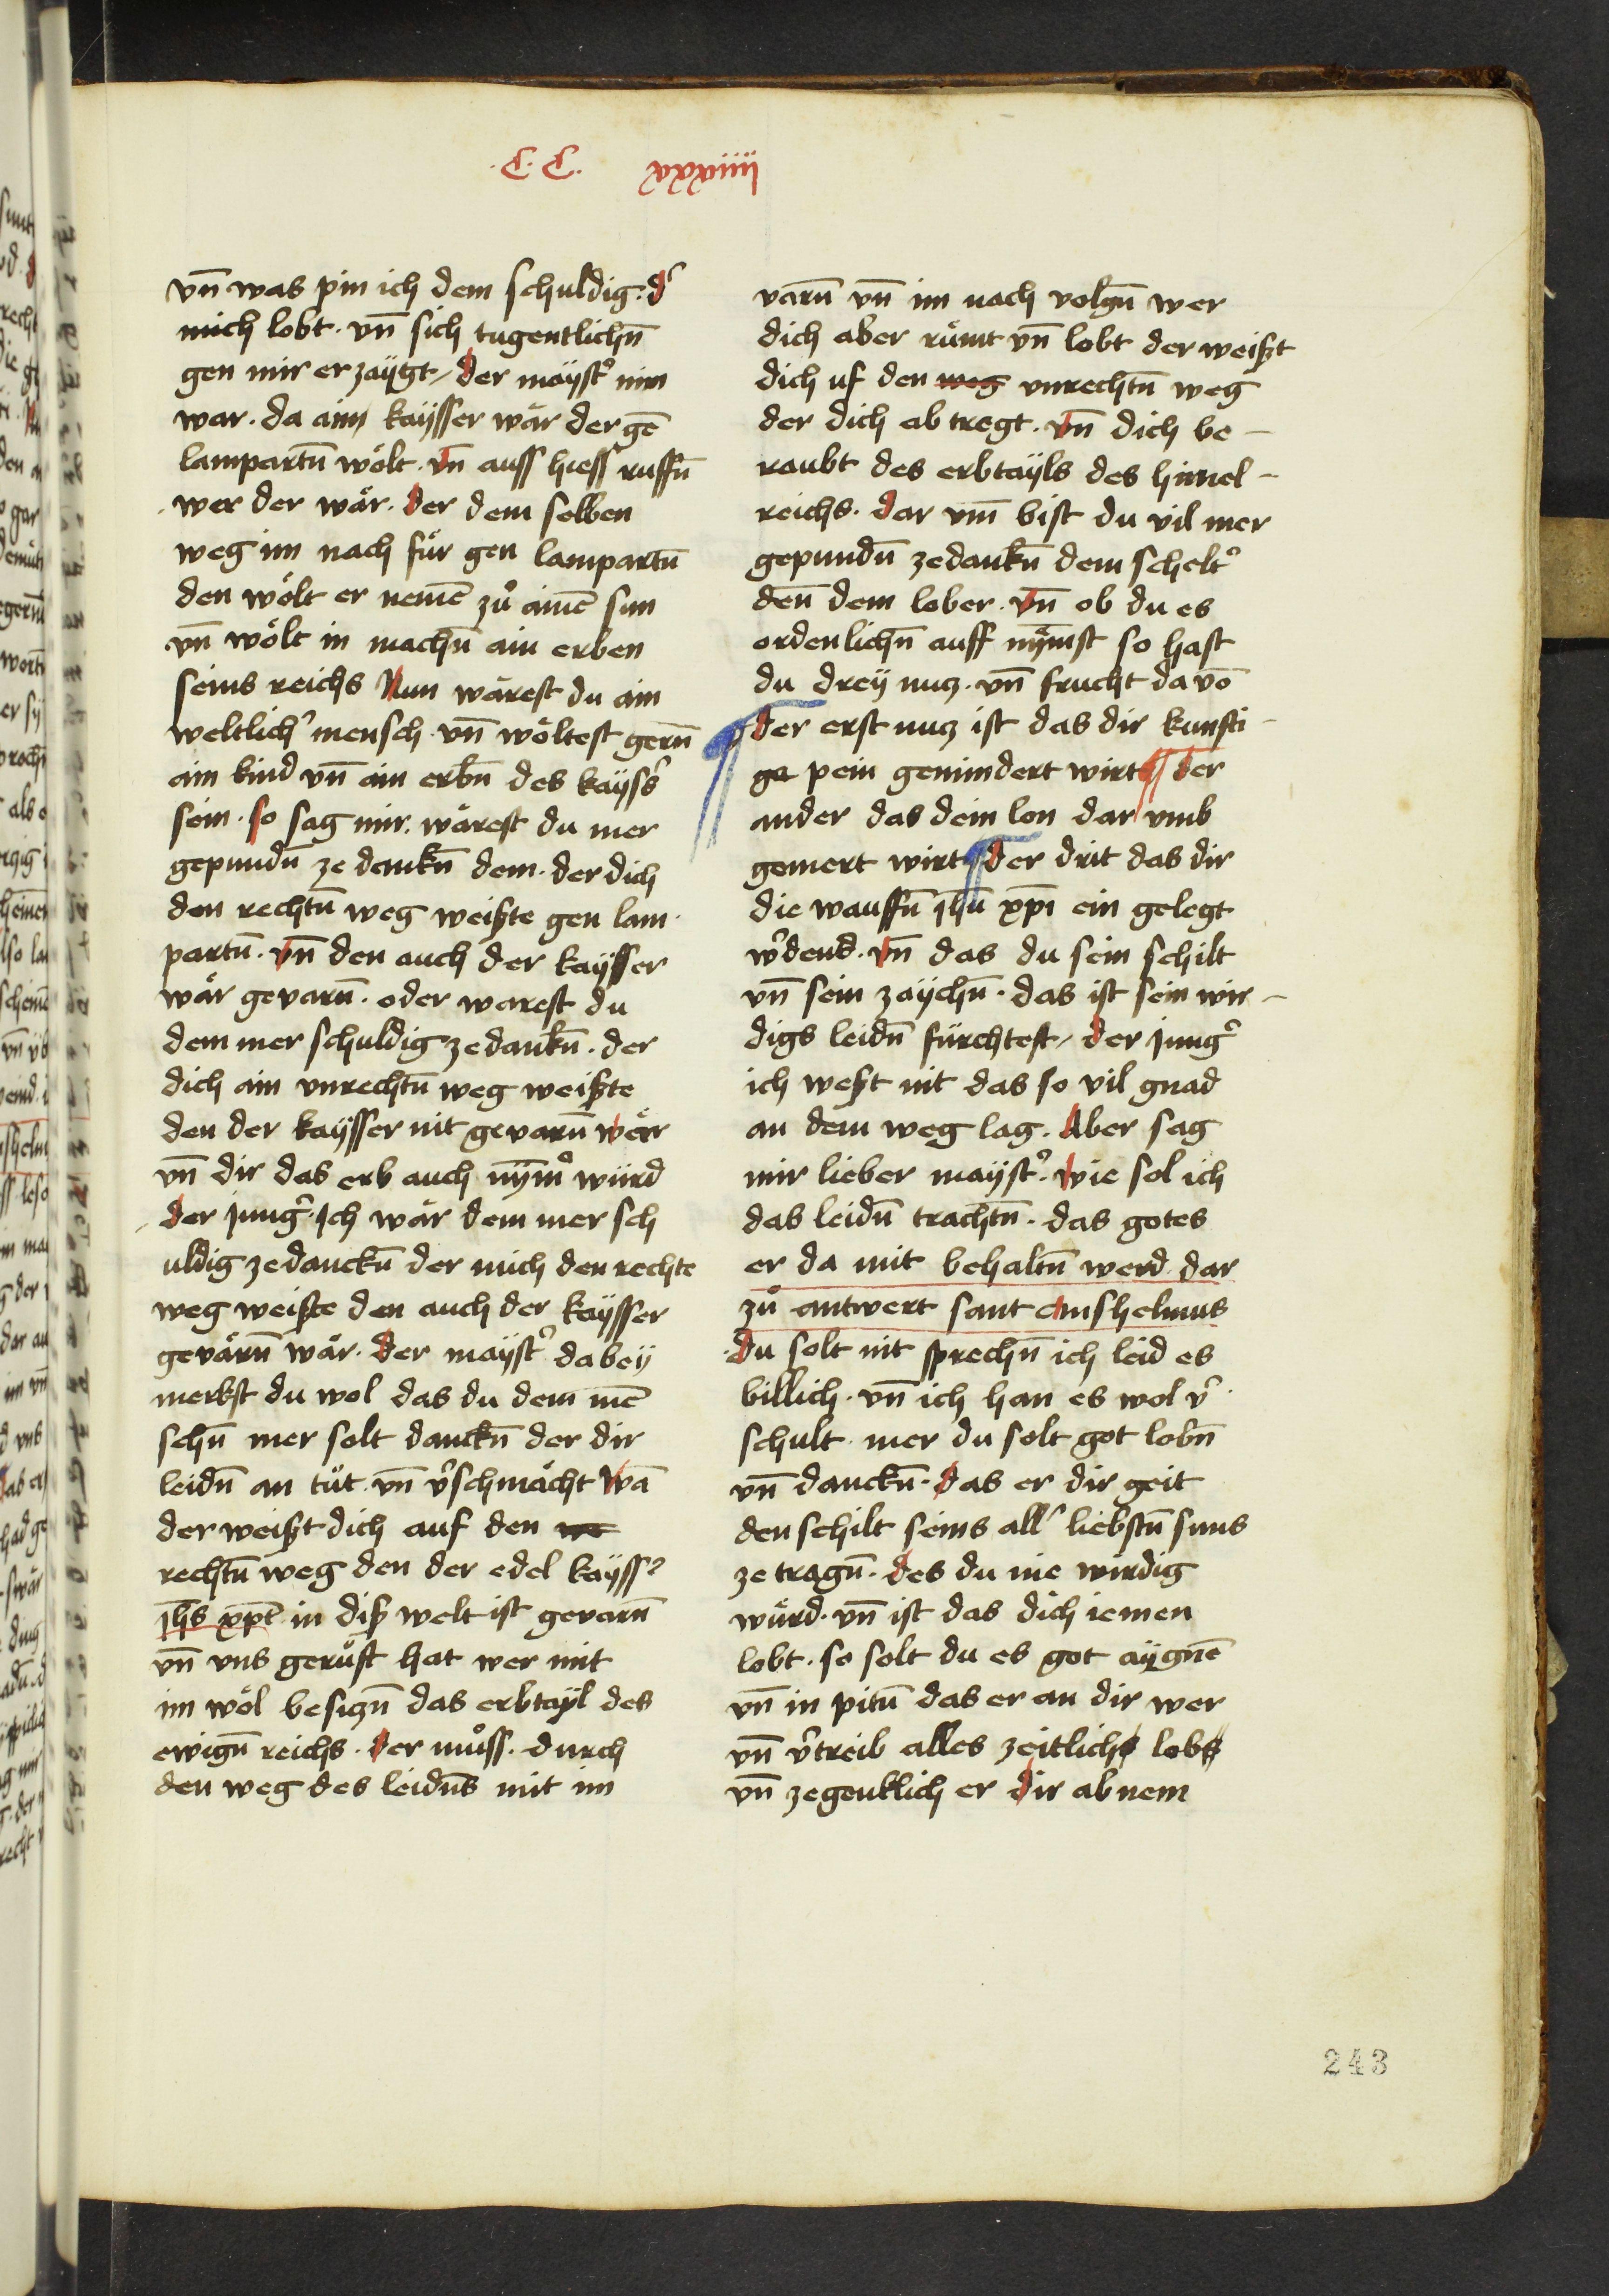 .C.C. xxxviiij
vn̄ was pin ich dem schuldig. d᾽
mich lobt. vn̄ sich tugentlichn̄
gen mir erzaÿgt / der maÿst᾽ nim
war. da ain kaÿsser wär der gē
lampartn̄ wölt. vn̄ auss hiess ruffn̄
wer der wär. der dem selben
weg im nach für gen lampartn̄
den wölt er nemē zů ainē sun
vn̄ wölt in machn̄ ain erben
seins reichs Nun wärest du ain
weltlich᾽ mensch. vn̄ wöltest gern̄
ain kind vn̄ ain erbn̄ des kaÿss᾽s
sein. so sag mir. wärest du mer
gepundn̄ ze dankn̄ dem. der dich
den rechtn̄ weg weißte gen lam
partn̄. vn̄ den auch der kaÿsser
wär gevarn̄. oder warest du
dem mer schuldig ze dankn̄. der
dich ain vnrechtn̄ weg weißte
den der kaÿsser nit gevarn̄ wär
vn̄ dir das erb auch nÿm᾽ würd
der jung᾽. Ich wär dem mer sch
uldig ze danckn̄ der mich den rechte
weg weißte den auch der kaÿsser
gevärn̄ wär. der maÿst᾽ da beÿ
merkst du wol das du dem mē
schn̄ mer solt danckn̄ der dir
leidn̄ an tüt. vn̄ v᾽schmächt Wā
der weißt dich auf den we
rechtn̄ weg den der edel kaÿss᾽
jhs xpc in diß welt ist gevarn̄
vn̄ vns gerüft hat wer mit
im wöl besiczn̄ das erbtaÿl des
ewign̄ reichs. der můss. durch
den weg des leidn̄s mit im
varn̄ vn̄ im nach volgn̄ wer
dich aber rümt vn̄ lobt der weißt
dich uf den weg vnrechtn̄ weg
der dich ab tregt. vn̄ dich be-
raubt des erbtaÿls des himel-
reichs. dar vm̄ bist du vil mer
gepundn̄ ze dankn̄ dem schelt᾽
den̄ dem lober. vn̄ ob du es
ordenlichn̄ auff nÿmst so hast
du dreÿ nucz. vn̄ frucht da vō
¶ der erst nucz ist das dir kunfti-
ge pein gemindert wirt ¶ der
ander das dein lon dar vmb
gemert wirt ¶ der drit das dir
die wauffn̄ jhū xpī ein gelegt
w᾽dend. vn̄ das du sein schilt
vn̄ sein zaÿchn̄. das ist sein wir-
digs leidn̄ fürchtest / der jung᾽
ich west nit das so vil gnad
an dem weg lag. Aber sag
mir lieber maÿst᾽. wie sol ich
das leidn̄ trachtn̄. das gotes
er da mit behaltn̄ werd dar
zů antwert sant anshelmus
. du solt nit sprechn̄ ich leid es
billich. vn̄ ich han es wol v᾽
schult. mer du solt got lobn̄
vn̄ danckn̄. das er dir geit
den schilt seins all᾽ liebstn̄ suns
ze tragn̄. des du nie wirdig
würd. vn̄ ist das dich iemen
lobt. so solt du es got aÿgnē
vn̄ in pitn̄ das er an dir wer
vn̄ v᾽treib alles zeitlichs lobs
vn̄ zegenklich er dir ab nem
243